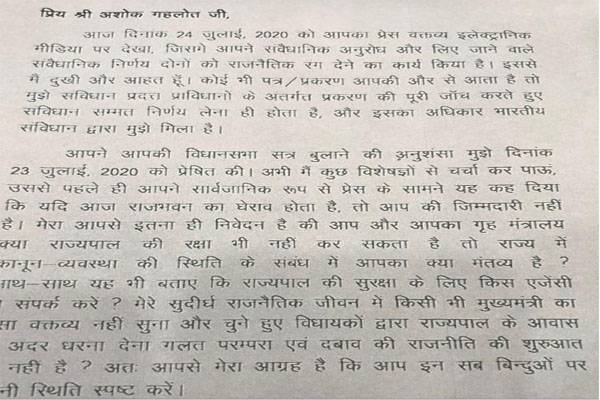 प्रिय श्री अशोक गहलोत जी,
आज दिनांक 24 जुलाई, 2020 को आपका प्रेस वक्तव्य इलेक्ट्रानिक
मीडिया पर देखा, जिसमे आपने संवैधानिक अनुरोध और लिए जाने वाले
संवैधानिक निर्णय दोनो को राजनैतिक रग देने का कार्य किया है। इससे
मै दुखी और आहत हूँ। कोई भी पत्र/प्रकरण आपकी और से आता है तो
मुझे संविधान प्रदत्त प्राविधानो के अंतर्गत प्रकरण की पूरी जाँच करते हुए
संविधान सम्मत निर्णय लेना ही होता है, और इसका अधिकार भारतीय
संविधान द्वारा मुझे मिला है।
आपने आपकी विधानसभा सत्र बुलाने की अनुशंसा मुझे दिनांक
23 जुलाई, 2020 को प्रेषित की। अभी मैं कुछ विशेषज्ञों से चर्चा कर पाऊं,
उससे पहले ही आपने सार्वजानिक रूप से प्रेस के सामने यह कह दिया
कि यदि आज राजभवन का घेराव होता है, तो आप की जिम्मदारी नहीं
है। मेरा आपसे इतना ही निवेदन है की आप और आपका गृह मंत्रालय
क्या राज्यपाल की रक्षा भी नहीं कर सकता है तो राज्य में
कानून–व्यवस्था की स्थिति के संबंध में आपका क्या मंतव्य है ?
साथ–साथ यह भी बताए कि राज्यपाल की सुरक्षा के लिए किस एजेंसी
संपर्क करें ? मेरे सुदीर्घ राजनैतिक जीवन में किसी भी मुख्यमंत्री का
वक्तव्य नहीं सुना और चुने हुए विधायकों द्वारा राज्यपाल के आवास
अदर धरना देना गलत परम्परा एवं दबाव की राजनीति की शुरुआत
नहीं है ? अतः आपसे मेरा आग्रह है कि आप इन सब बिन्दुओं पर
स्थिति स्पष्ट करें।